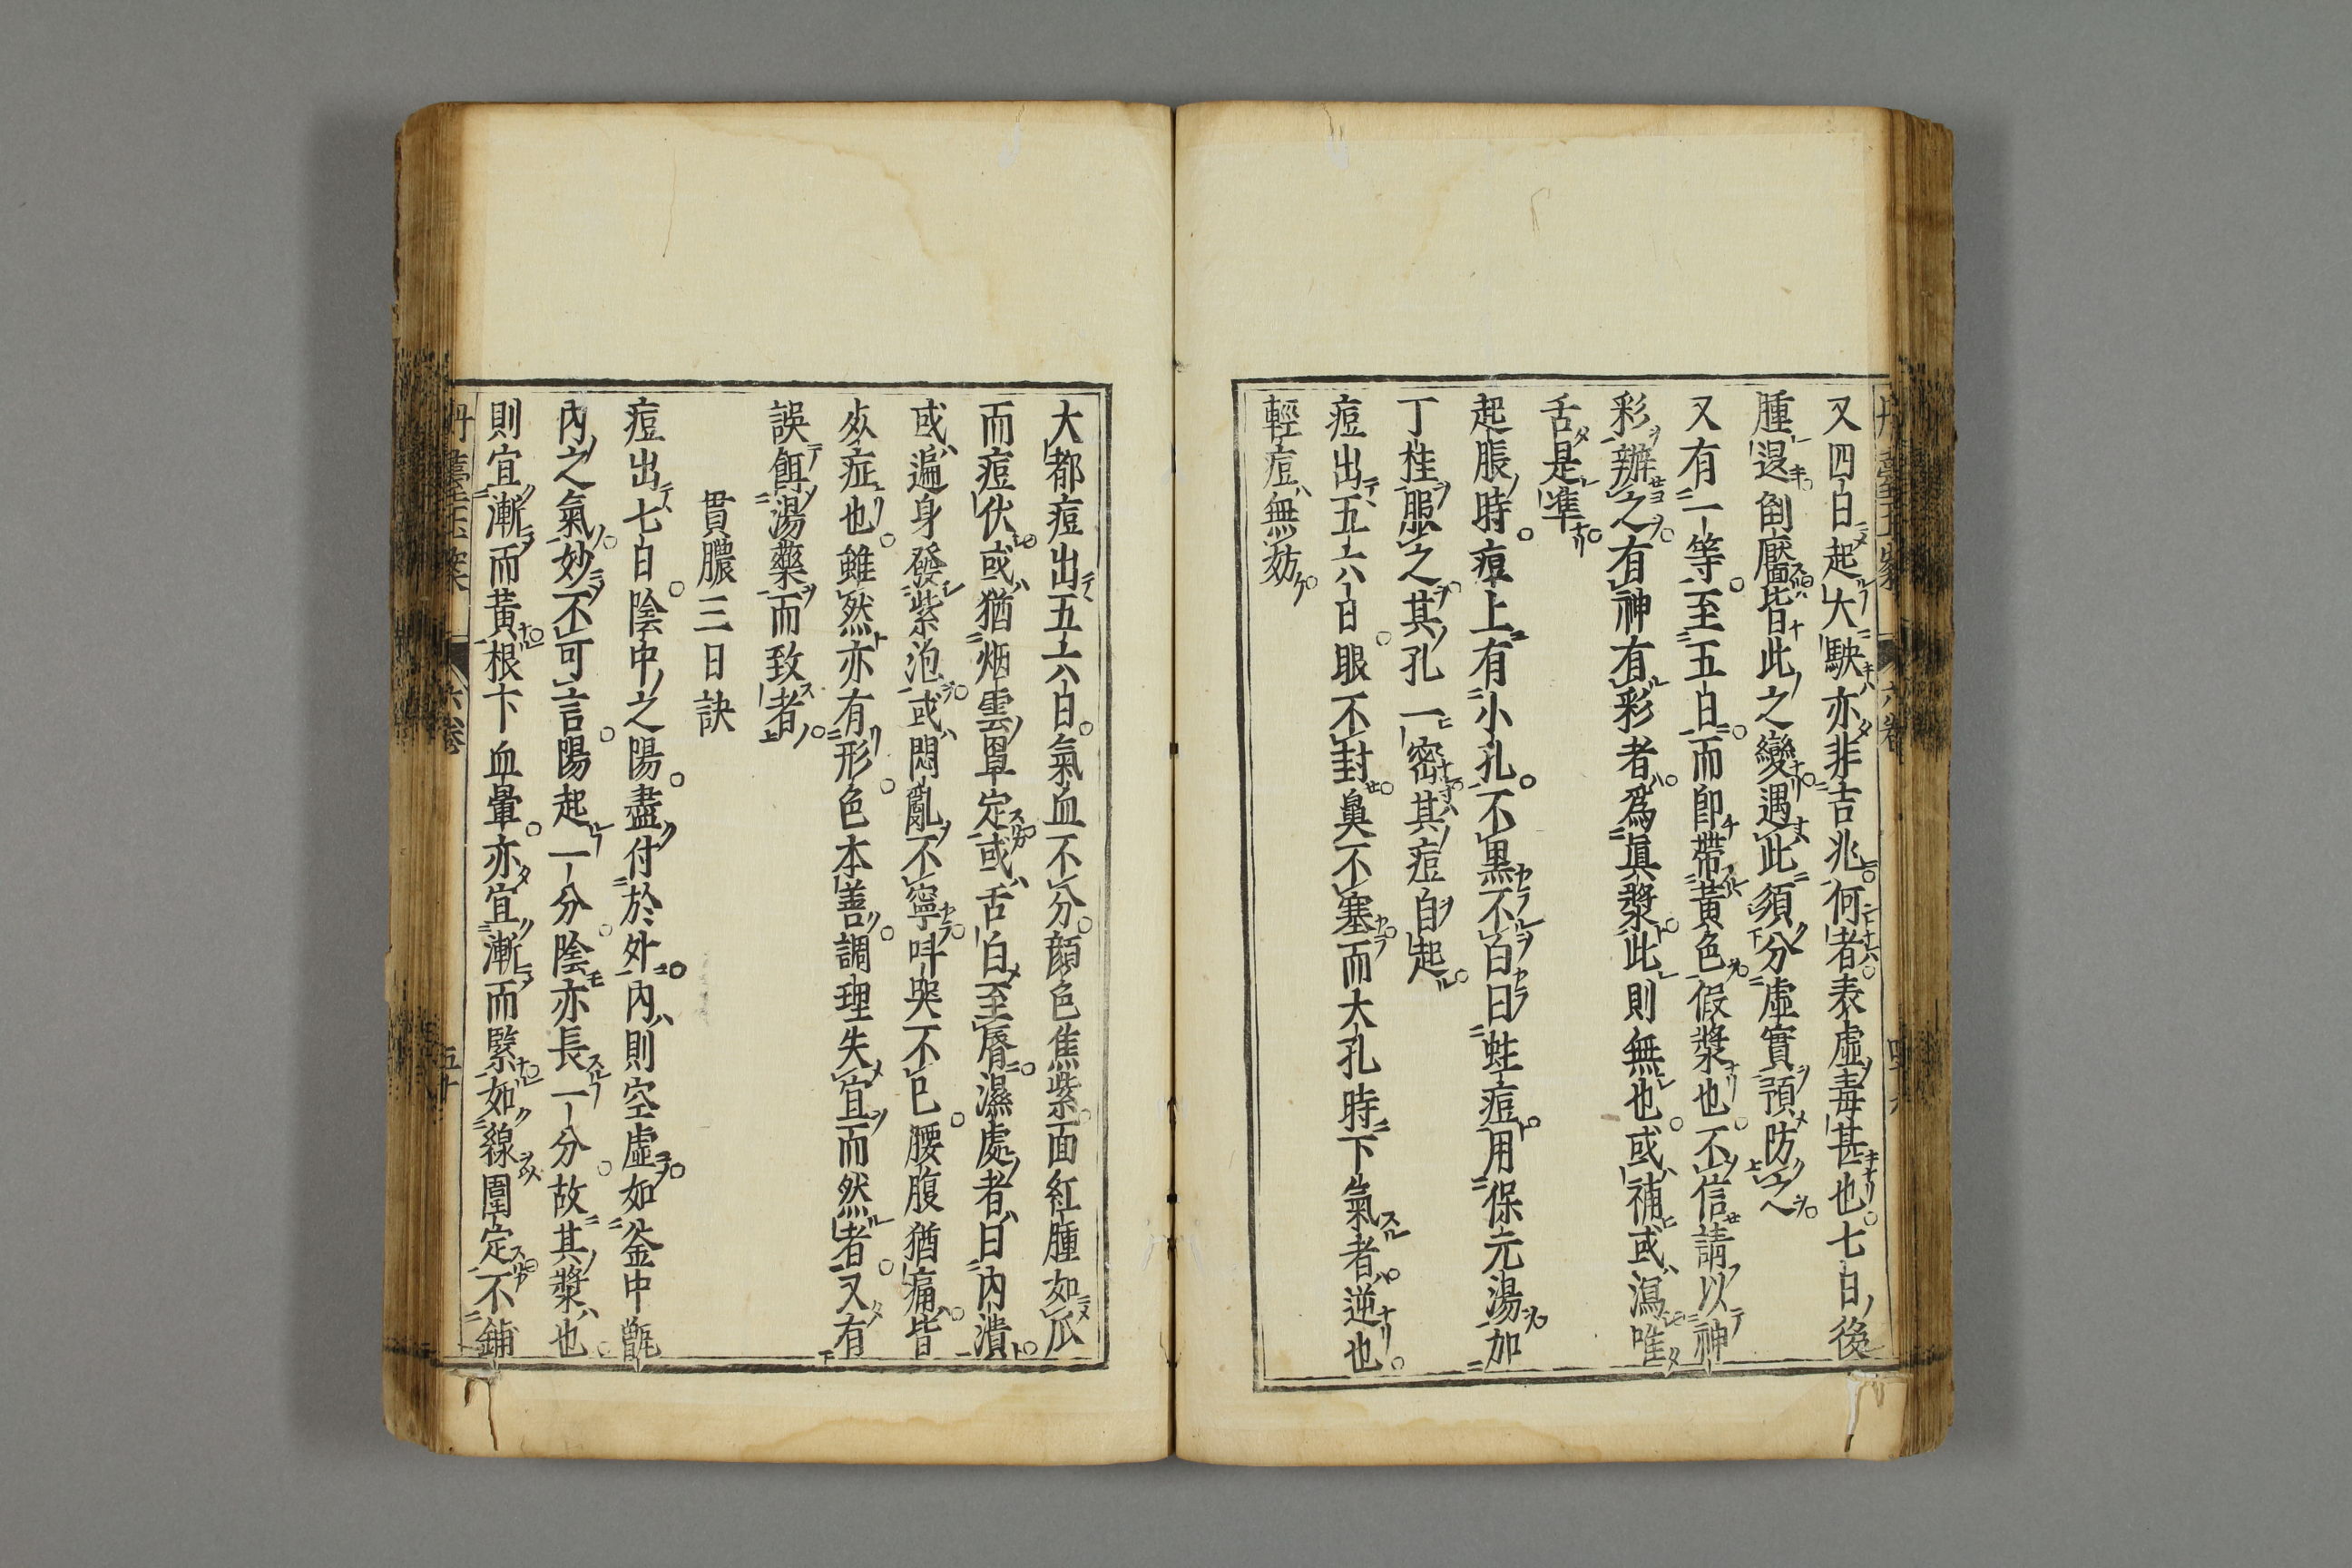 又四日起大駚亦非吉兆何者表虛毒甚也七日後
腫退倒靨皆此之變遇此須分虛實預防之
又有一等至五日而即帶黃色假漿也不信請以神
彩辦之有神有彩者爲眞漿此則無也或補或瀉唯
舌是準
起脹時痘上有小孔不黑不白曰蛀痘用保元湯加
丁桂服之其孔一密其痘自起
痘出五六日眼不封鼻不塞而大孔時下氣者逆也
輕痘無妨
大都痘出五六日氣血不分顏色焦紫面紅腫如瓜
而痘伏或猶烟雲罩定或舌白至脣濕處者曰內潰
或遍身發紫泡或悶亂不寧呌哭不已腰腹猶痛皆
症也雖然亦有形色本善調理失宜而然者又有
誤餌湯藥而致者
貫膿三日訣
痘出七日陰中之陽盡付於外內則空虛如釜中甑
內之氣妙不可言陽起一分陰亦長一分故其漿也
則宜漸而黃根下血暈亦宜漸而緊如線圍定不鋪
丹臺玉案 六卷 五十
丹臺玉案 六卷